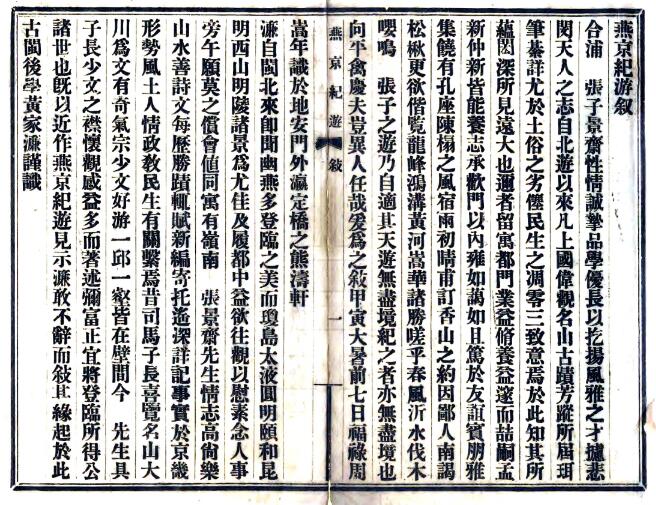 燕京紀游叙
合浦　張子景齋性情誠摯品學優長以扢揚風雅之才攄悲
閔天人之志自北遊以來凡上國偉觀名山古蹟芳蹤所屆珥
筆綦詳尤於土俗之劣僿民生之凋零三致意焉於此知其所
蘊閎深所見遠大也邇者留寓都門業益脩養益邃而喆嗣孟
新仲新皆能養志承歡門以內雍如藹如且篤於友誼賓朋雅
集饒有孔座陳榻之風宿雨初晴甫訂香山之約因鄙人南謁
松楸更欲偕覽龍峰鴻溝黃河嵩華諸勝嗟乎春風沂水伐木
嚶鳴　張子之遊乃自適其天遊無盡境紀之者亦無盡境也
向平禽慶夫豈異人任哉爰爲之敘甲寅大暑前七日福祿周
燕京紀遊　敘　一
嵩年識於地安門外瀛定橋之熊濤軒
濂自閩北來卽聞幽燕多登臨之美而瓊島太液圓明頤和昆
明西山明陵諸景爲尤佳及履都中益欲往觀以慰素念人事
旁午願莫之償會値同寓有嶺南　張景齋先生情志高尙樂
山水善詩文每歷勝蹟輒賦新編寄托遙深詳記事實於京畿
形勢風土人情政敎民生有關繫焉昔司馬子長喜覽名山大
川爲文有奇氣宗少文好游一邱一壑皆在壁間今　先生具
子長少文之襟懷觀感益多而著述彌富正宜將登臨所得公
諸世也旣以近作燕京紀遊見示濂敢不辭而敍其緣起於此
古閩後學黃家濂謹識